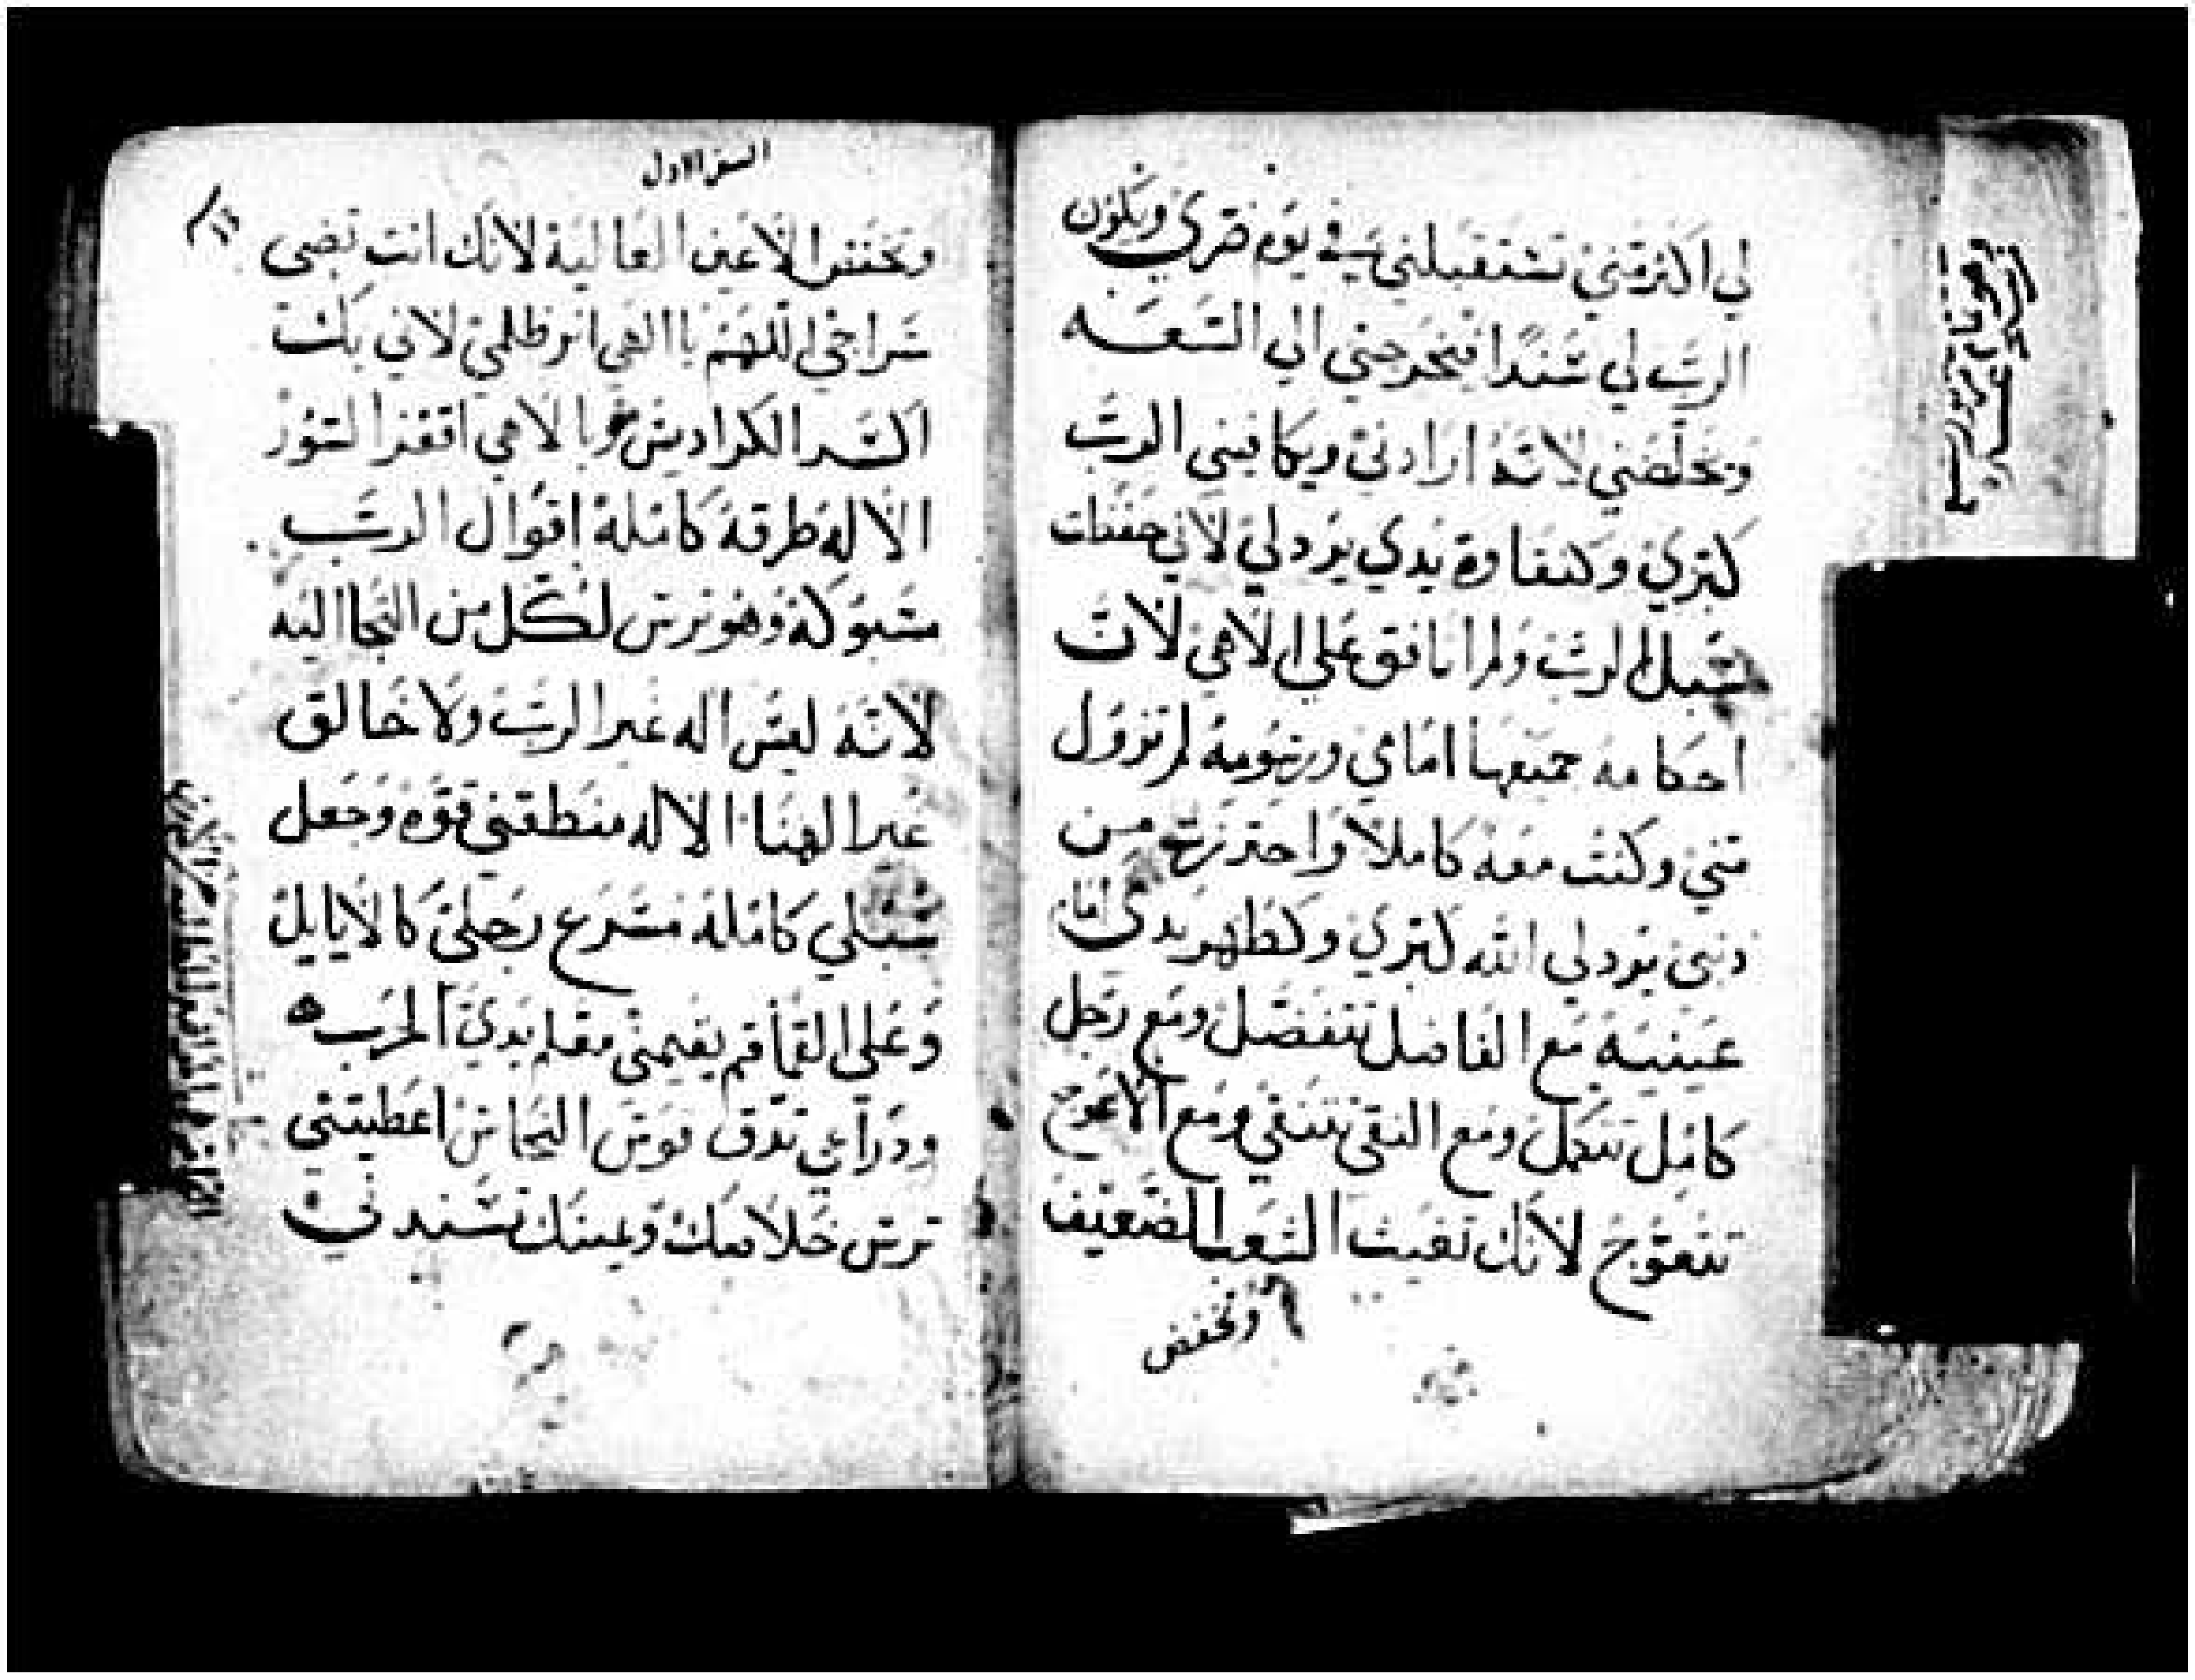 لي اكثر مني تستقبلني في يوم ضري ويكون
الرب لي سندا فيخرجني الي السعه
ويخلصني لانه ارادني ويكافيني الرب
كبري وكنقاوة يدي يرد لي لاني حفظت
سبل الرب ولم انافق علي الاهي لان
احكامه جميعها امامي ورسومه لم تزول
مني وكنت معه كاملا واحترزت من
ذنبي يرد لي الله كبري وكطهر يدي امام
عينيه مع الفاضل تتفضل ومع رجل
كامل تتكمل ومع النقي تتنقي ومع الاعوج
تتعوج لانك تغيث الشعب الضعيف
وتخفض
السفر الاول
وتخفض الاعين العالية لانك انت تضي
سراجي اللهم يا الهي انر ظلمتي لاني بك
الكراديس وبالاهي اقفز السور
الاله طرقه كاملة اقوال الرب
مسبوكة وهو ترس لكل من التجا اليه
لانه ليس اله غير الرب ولا خالق
غير الهنا الاله منطقني قوه وجعل
سبلي كاملة مسرع رجلي كالايايل
وعلي القمام يقيمني معلم يدي الحرب
ودراعي تدق قوس النحاس اعطيتني
ترس خلاصك ويمينك تسندني